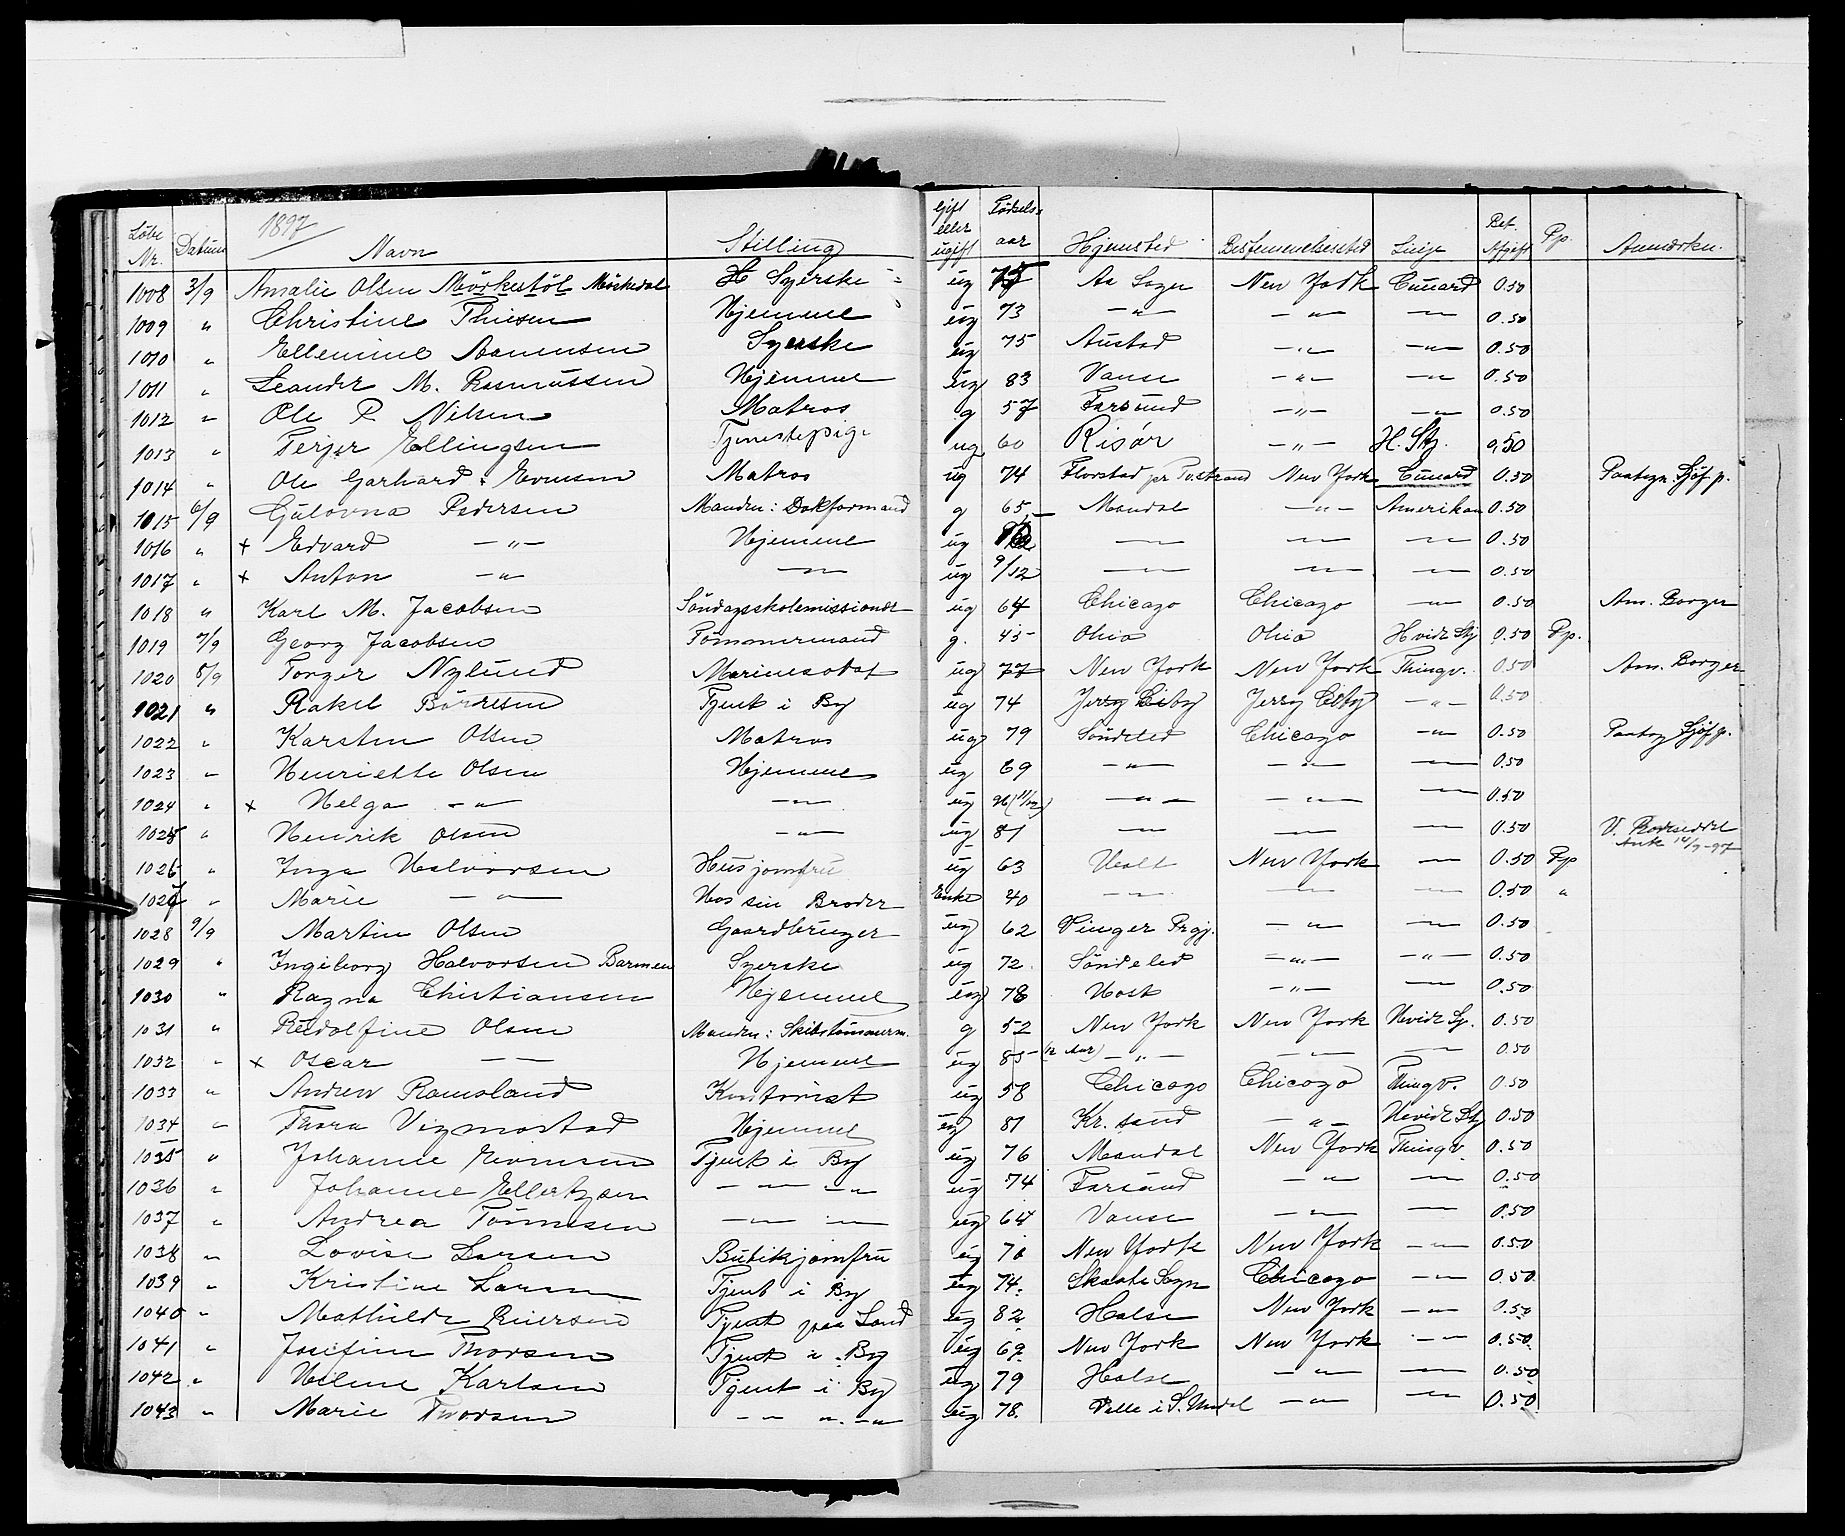 1897
Løbe Nr. Datum Navn Stilling Gift eller ugift Fødsels aar Hjemsted Bestemmelsessted Linje Bet. Afgift Pp. Anmærkn.
1008 3/9 Amalie Olsen Mörkestöl Mörkedal Syerske ug 75 Aa Sogn New York Cunard 0.50
1009 " Christine Thiesen Hjemme ug 73 — " — — " — — " — 0.50
1010 " Ellemine Aanensen Syerske ug 75 Austad — " — — " — 0.50
1011 " Leander M. Rasmussen Hjemme ug 83 Vanse — " — — " — 0.50
1012 " Ole P. Nilsen Matros g 57 Farsund — " — — " — 0.50
1013 " Terjer Ellingsen Tjenestepige ug 60 Risör — " — H. Stj. 0,50
1014 " Ole Gerhard Evensen Matros ug 74 Flovstad pr Tvestrand New York Cunard 0.50 Paategn. Sjöf. p.
1015 6/9 Gulovna Pedersen Manden: Dokformand g 65 Mandal — " — Amerikan 0.50
1016 " x Edvard — " — Hjemme ug — " — — " — — " — 0.50
1017 " x Anton — " — — " — ug 9/12 — " — — " — — " — 0.50
1018 " Karl M. Jacobsen Söndagsskolemissionær ug 64 Chicago Chicago — " — 0.50 Am. Borger
1019 7/9 Georg Jacobsen Tömmermand g. 45 Ohio Ohio Hvide Stj 0.50 Pp.
1020 8/9 Torger Nylund Marinesoldat ug 77 New York New York Thingv. 0.50 Am. Borger
1021 " Rakel Börresen Tjent i By ug 74 Jersy City Jersy City — " — 0.50
1022 " Karsten Olsen Matros ug 79 Söndeled Chicago — " — 0.50 Paateg Sjöf p.
1023 " Henriette Olsen Hjemme ug 69 — " — — " — — " — 0.50
1024 " x Helga — " — — " — ug 96 (11/12) — " — — " — — " — 0.50
1025 " Henrik Olsen — " — ug 81 — " — — " — — " — 0.50 V. Rodeseddel
1026 " Inga Halvorsen Husjomfru ug 63 Holt New York — " — 0.50 Pp
1027 " Marie — " — Hos sin Broder Enke 40 — " — — " — — " — 0.50 "
1028 9/9 Martin Olsen Gaardbruger ug 62 Vinger Prgj. — " — — " — 0.50
1029 " Ingeborg Halvorsen Barmen Syerske ug 72 Söndeled — " — — " — 0.50
1030 " Ragna Christiansen Hjemme ug 78 Host — " — 0.50
1031 " Rudolfine Olsen Manden: Skibstömmerm. g 52 New York New York Hvide Sj. 0.50
1032 " x Oscar — " — Hjemme ug 85 (12 Aar) — " — — " — — " — 0.50
1033 " Andrew Ramsland Kontorist ug 58 Chicago Chicago Thingv. 0.50
1034 " Thora Vigmostad Hjemme ug 81 Kr. sand — " — Hvide Stj 0.50
1035 " Johanne Evensen Tjent i By ug 76 Mandal New York Thingv. 0.50
1036 " Johanne Ellertsen — " — — " — ug 74 Farsund — " — — " — 0.50
1037 " Andrea Tönnesen — " — — " — ug 64 Vanse — " — — " — 0.50
1038 " Lovise Larsen Butikjomfru ug 76 New York New York — " — 0.50
1039 " Kristine Larsen Tjent i By ug 74. Skaate Sogn Chicago — " — 0.50
1040 " Mathilde Reiersen Tjent paa Land ug 82 Halse New York — " — 0.50
1041 " Josefine Thorsen Tjent i By ug 69. New York New York — " — 0.50
1042 " Helene Karlsen Tjent i By ug 79 Halse — " — — " — 0.50
1043 " Marie Thorsen — " — — " — ug 78. Valle i S. Undal — " — — " — 0.50